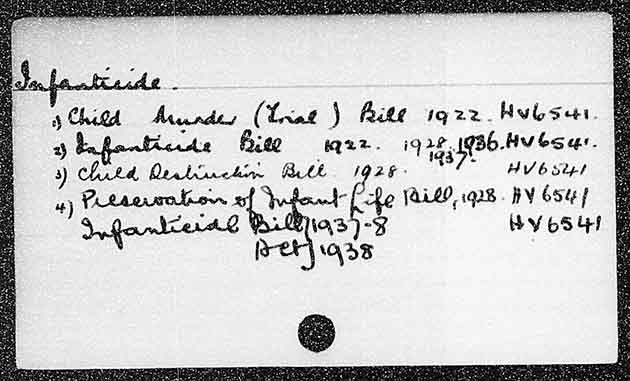 Infanticide.
1) Child Murder (Trial) Bill 1922. HV6541.
2) Infanticide Bill 1922. 1928. 1936. HV6541.
1937.
3) Child Destruction Bill 1928. HV6541
4) Preservation of Infant Life Bill, 1928. HV6541
Infanticide Bill} 1937-8 HV6541
Act} 1938